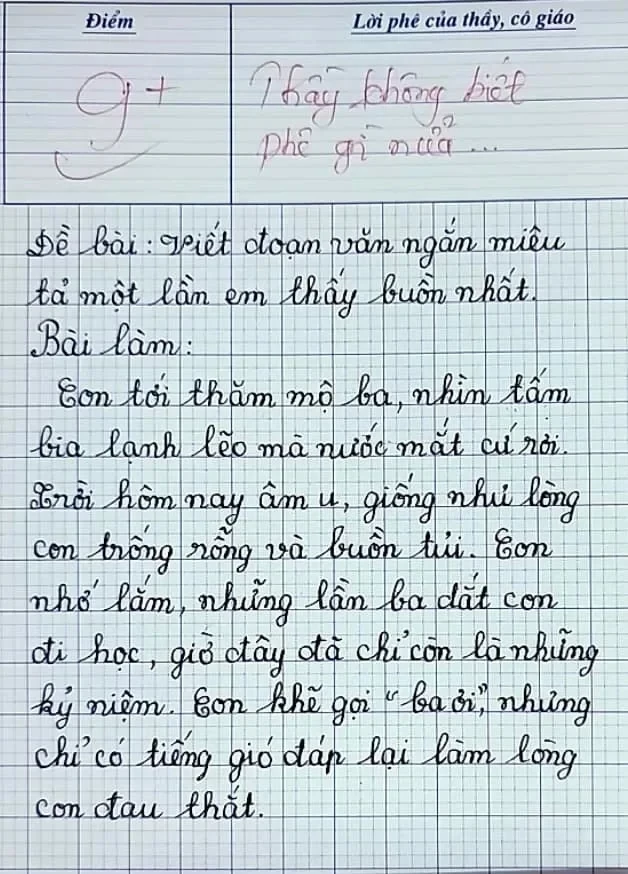 Điểm
Lời phê của thầy, cô giáo
9+
Thầy không biết
phê gì nữa...
Đề bài: Viết đoạn văn ngắn miêu
tả một lần em thấy buồn nhất.
Bài làm:
Con tới thăm mộ ba, nhìn tấm
bia lạnh lẽo mà nước mắt cứ rơi.
Trời hôm nay âm u, giống như lòng
con trống rỗng và buồn tủi. Con
nhớ lắm, những lần ba dắt con
đi học, giờ đây đã chỉ còn là những
kỷ niệm. Con khẽ gọi "ba ơi", nhưng
chỉ có tiếng gió đáp lại làm lòng
con đau thắt.